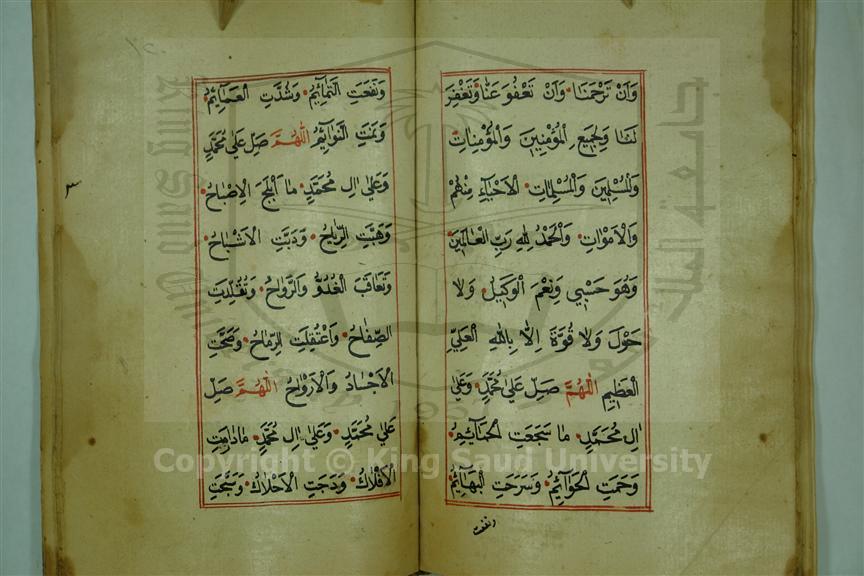 وَاَنْ تَرْحَمَنَا وَاَنْ تَعْفُوَ عَنَّا وَتَغْفِرَ
لَنَا وَلِجَمِيعِ الْمُؤْمِنِينَ وَالْمُؤْمِنَاتِ
وَالْمُسْلِمِينَ وَالْمُسْلِمَاتِ الْاَحْيَآءِ مِنْهُمْ
وَالْاَمْوَاتِ وَالْحَمْدُ لِلّٰهِ رَبِّ الْعَالَمِينَ
وَهُوَ حَسْبِي وَنِعْمَ الْوَكِيلُ وَلَا
حَوْلَ وَلَا قُوَّةَ اِلَّا بِاللّٰهِ الْعَلِيِّ
الْعَظِيمِ اَللّٰهُمَّ صَلِّ عَلٰى مُحَمَّدٍ وَعَلٰى
اٰلِ مُحَمَّدٍ مَا سَجَعَتِ الْحَمَآئِمُ
وَحَمَتِ الْحَوَآئِمُ وَسَرَحَتِ الْبَهَآئِمُ
ونفعت
وَنَفَعَتِ التَّمَآئِمُ وَشُدَّتِ الْعَمَآئِمُ
وَنَمَتِ النَّوَآئِمُ اَللّٰهُمَّ صَلِّ عَلٰى مُحَمَّدٍ
وَعَلٰى اٰلِ مُحَمَّدٍ مَا اَبْلَجَ الْاِصْبَاحُ
وَهَبَّتِ الرِّيَاحُ وَدَبَّتِ الْاَشْبَاحُ
وَتَعَاقَبَ الْغُدُوُّ وَالرَّوَاحُ وَتُقُلِّدَتِ
الصِّفَاحُ وَاعْتُقِلَتِ الرِّمَاحُ وَصَحَّتِ
الْاَجْسَادُ وَالْاَرْوَاحُ اَللّٰهُمَّ صَلِّ
عَلٰى مُحَمَّدٍ وَعَلٰى اٰلِ مُحَمَّدٍ مَا دَارَتِ
الْاَفْلَاكُ وَدَجَتِ الْاَحْلَاكُ وَسَبَّحَتِ
Copyright © King Saud University